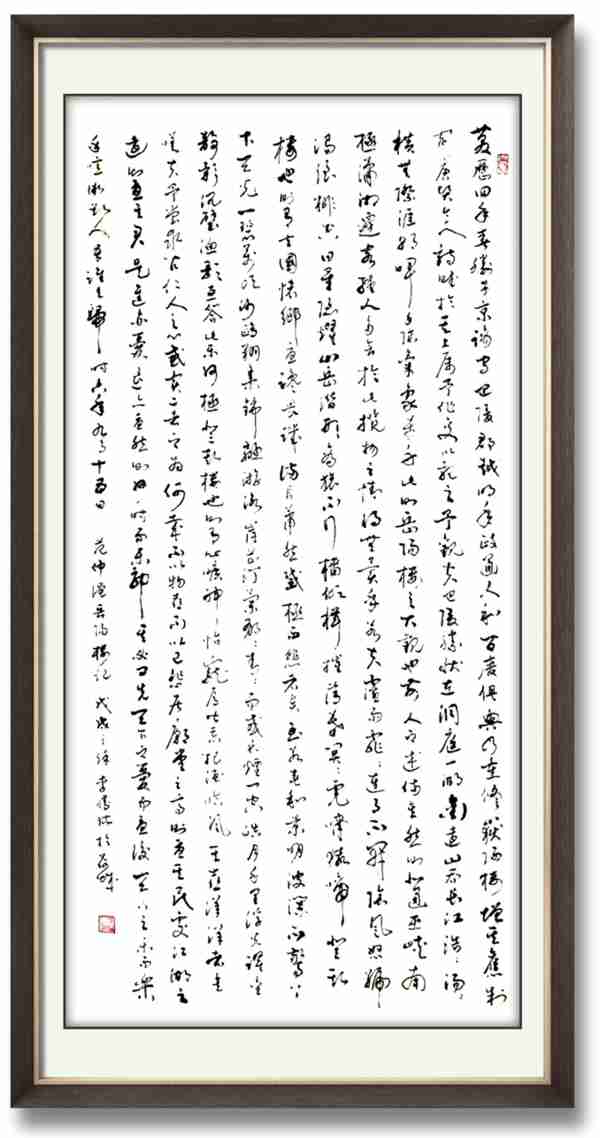 慶曆四年春滕子京謫守巴陵郡越明年政通人和百廢俱興乃重修嶽陽樓增其舊制
刻唐賢今人詩賦於其上屬予作文以記之予觀夫巴陵勝狀在洞庭一湖銜遠山吞長江浩浩湯湯
橫無際涯朝暉夕陰氣象萬千此則岳陽樓之大觀也前人之述備矣然則北通巫峽南
極瀟湘遷客騷人多會於此覽物之情得無異乎若夫霪雨霏霏連月不開陰風怒號
濁浪排空日星隱耀山岳潛形商旅不行檣傾楫摧薄暮冥冥虎嘯猿啼登斯
樓也則有去國懷鄉憂讒畏譏滿目蕭然感極而悲者矣至若春和景明波瀾不驚上
下天光一碧萬頃沙鷗翔集錦鱗游泳岸芷汀蘭郁郁青青而或長煙一空皓月千里浮光躍金
靜影沉璧漁歌互答此樂何極登斯樓也則有心曠神怡寵辱皆忘把酒臨風其喜洋洋者矣
嗟夫予嘗求古仁人之心或異二者之為何哉不以物喜不以己悲居廟堂之高則憂其民處江湖之
遠則憂其君是進亦憂退亦憂然則何時而樂耶其必曰先天下之憂而憂後天下之樂而樂
乎噫微斯人吾誰與歸時六年九月十五日 范仲淹岳陽樓記 戊戌之秋李於城